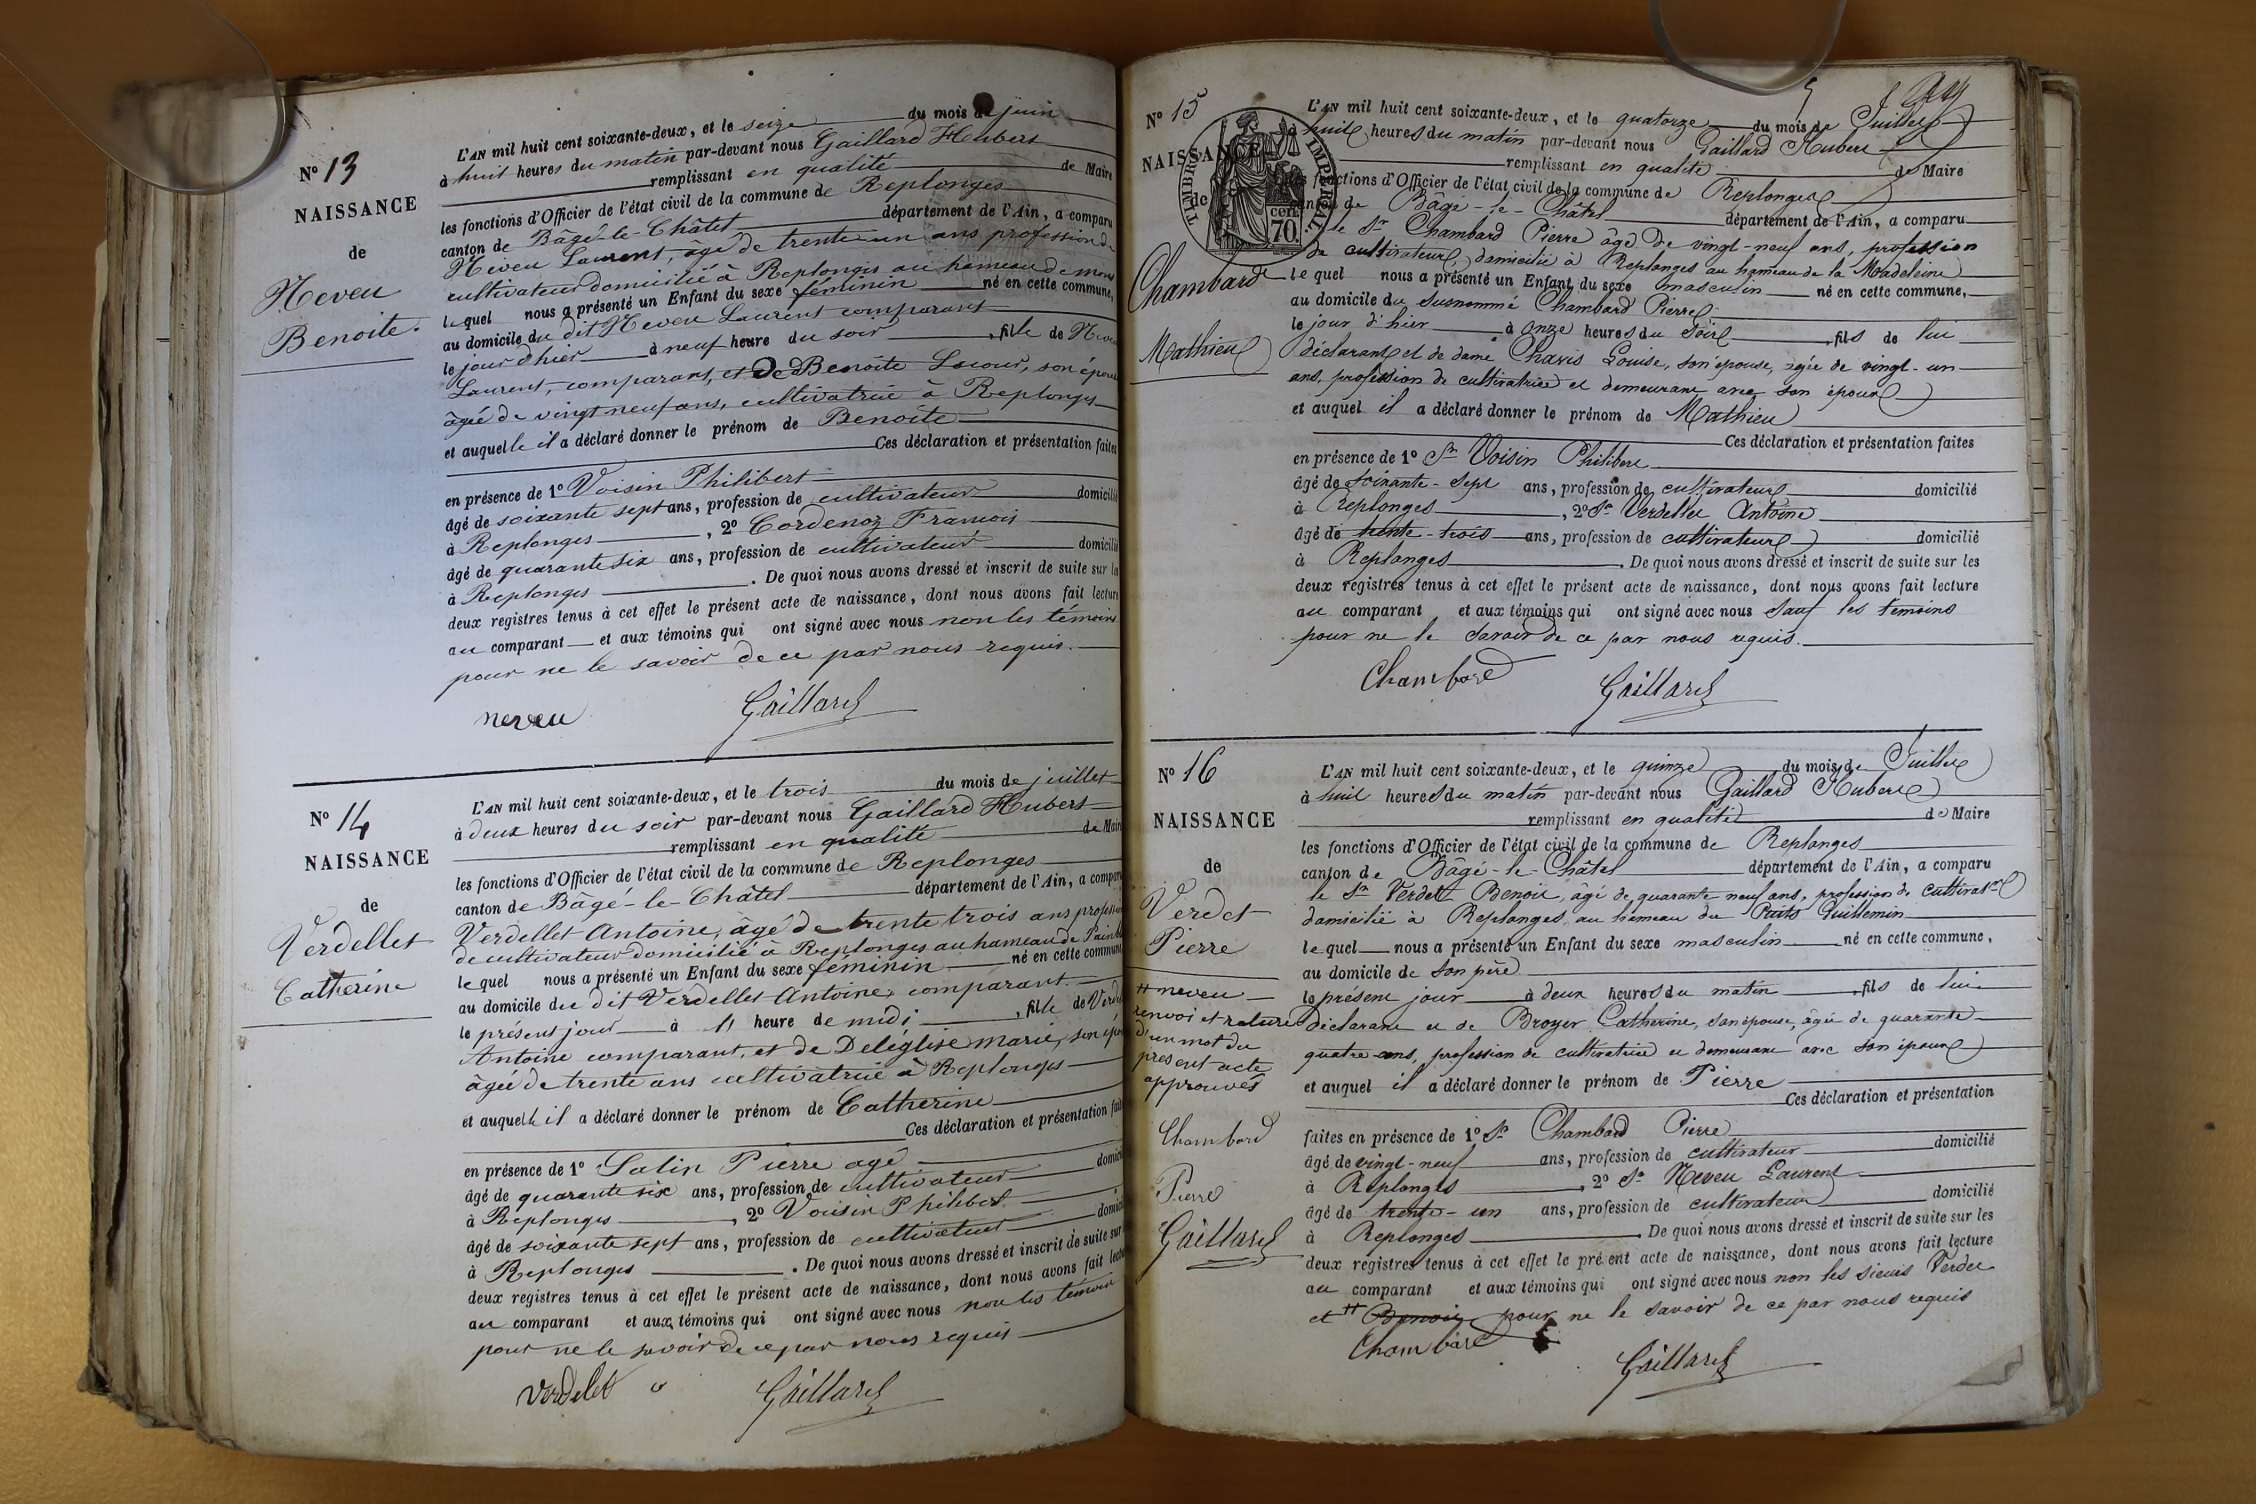 N° 13
NAISSANCE
de
Neveu
Benoite.
L'AN mil huit cent soixante-deux, et le seize du mois de juin
à huit heures du matin par-devant nous Gaillard Hubert
remplissant en qualité de Maire
les fonctions d'Officier de l'état civil de la commune de Replonges
canton de Bâgé-le-Châtel département de l'Ain, a comparu
Neveu Laurent, âgé de trente un ans profession de
cultivateur domicilié à Replonges au hameau de
lequel nous a présenté un Enfant du sexe féminin né en cette commune,
au domicile du dit Neveu Laurent comparant
le jour d'hier à neuf heure du soir, fille de Neveu
Laurent, comparant, et de Benoite Locour, son épouse
âgée de vingt neuf ans, cultivatrice à Replonges
et auquelle il a déclaré donner le prénom de Benoite
Ces déclaration et présentation faites
en présence de 1° Voisin Philibert
âgé de soixante sept ans, profession de cultivateur domicilié
à Replonges, 2° Cordenoz Francois
âgé de quarante six ans, profession de cultivateur domicilié
à Replonges. De quoi nous avons dressé et inscrit de suite sur les
deux registres tenus à cet effet le présent acte de naissance, dont nous avons fait lecture
au comparant et aux témoins qui ont signé avec nous non les témoins
pour ne le savoir de ce par nous requis.
neveu Gaillard
N° 14
NAISSANCE
de
Verdellet
Catherine
L'AN mil huit cent soixante-deux, et le trois du mois de juillet
à deux heures du soir par-devant nous Gaillard Hubert
remplissant en qualité de Maire
les fonctions d'Officier de l'état civil de la commune de Replonges
canton de Bâgé-le-Châtel département de l'Ain, a comparu
Verdellet Antoine, âgé de trente trois ans profession
de cultivateur domicilié à Replonges au hameau de
lequel nous a présenté un Enfant du sexe féminin né en cette commune
au domicile du dit Verdellet Antoine, comparant.
le présent jour à 11 heure de midi, fille de Verdellet
Antoine comparant, et de Deléglise marie, son épouse
âgée de trente ans cultivatrice à Replonges
et auquelle il a déclaré donner le prénom de Catherine
Ces déclaration et présentation faites
en présence de 1° Salin Pierre agé
âgé de quarante six ans, profession de cultivateur domicilié
à Replonges, 2° Voisin Philibert
âgé de soixante sept ans, profession de cultivateur domicilié
à Replonges. De quoi nous avons dressé et inscrit de suite sur
deux registres tenus à cet effet le présent acte de naissance, dont nous avons fait lecture
au comparant et aux témoins qui ont signé avec nous non les témoins
pour ne le savoir de ce par nous requis
Verdelet Gaillard
N° 15
NAISSANCE
de
Chambard
Mathieu
TIMBRE IMPÉRIAL
70 cen.
L'AN mil huit cent soixante-deux, et le quatorze du mois de Juillet
à huit heures du matin par-devant nous Gaillard Hubert
remplissant en qualité de Maire
les fonctions d'Officier de l'état civil de la commune de Replonges
canton de Bâgé-le-Châtel département de l'Ain, a comparu
le Sr Chambard Pierre âgé de vingt-neuf ans, profession
de cultivateur, domicilié à Replonges au hameau de la Madeleine
lequel nous a présenté un Enfant du sexe masculin né en cette commune,
au domicile du susnommé Chambard Pierre
le jour d'hier à onze heures du soir, fils de lui
déclarant et de dame Charis Louise, son épouse, agée de vingt-un
ans, profession de cultivatrice et demeurant avec son époux
et auquel il a déclaré donner le prénom de Mathieu
Ces déclaration et présentation faites
en présence de 1° Sr Voisin Philibert
âgé de soixante-sept ans, profession de cultivateur domicilié
à Replonges, 2° Sr Verdellet Antoine
âgé de trente-trois ans, profession de cultivateur domicilié
à Replonges. De quoi nous avons dressé et inscrit de suite sur les
deux registres tenus à cet effet le présent acte de naissance, dont nous avons fait lecture
au comparant et aux témoins qui ont signé avec nous sauf les temoins
pour ne le savoir de ce par nous requis.
Chambard Gaillard
N° 16
NAISSANCE
de
Verdet
Pierre
# neveu
renvoi et rature
d'un mot du
present acte
approuvés
Chambard
Pierre
Gaillard
L'AN mil huit cent soixante-deux, et le quinze du mois de Juillet
à huit heures du matin par-devant nous Gaillard Hubert
remplissant en qualité de Maire
les fonctions d'Officier de l'état civil de la commune de Replonges
canton de Bâgé-le-Châtel département de l'Ain, a comparu
le Sr Verdet Benoit, âgé de quarante neuf ans, profession de cultivatr
domicilié à Replonges, au hameau du Puits Guillemin
lequel nous a présenté un Enfant du sexe masculin né en cette commune,
au domicile de son père
le présent jour à deux heures du matin, fils de lui
déclarant et de Broyer Catherine, son épouse, âgée de quarante
quatre ans, profession de cultivatrice et demeurant avec son époux
et auquel il a déclaré donner le prénom de Pierre
Ces déclaration et présentation
faites en présence de 1° Sr Chambard Pierre
âgé de vingt-neuf ans, profession de cultivateur domicilié
à Replonges, 2° Sr Neveu Laurent
âgé de trente-un ans, profession de cultivateur domicilié
à Replonges. De quoi nous avons dressé et inscrit de suite sur les
deux registres tenus à cet effet le présent acte de naissance, dont nous avons fait lecture
au comparant et aux témoins qui ont signé avec nous non les sieurs Verdet
et # Benoit pour ne le savoir de ce par nous requis
Chambard Gaillard